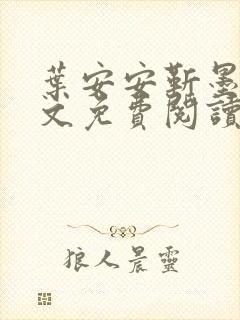 葉安安靳墨
文免費閱讀
狼人晨靈